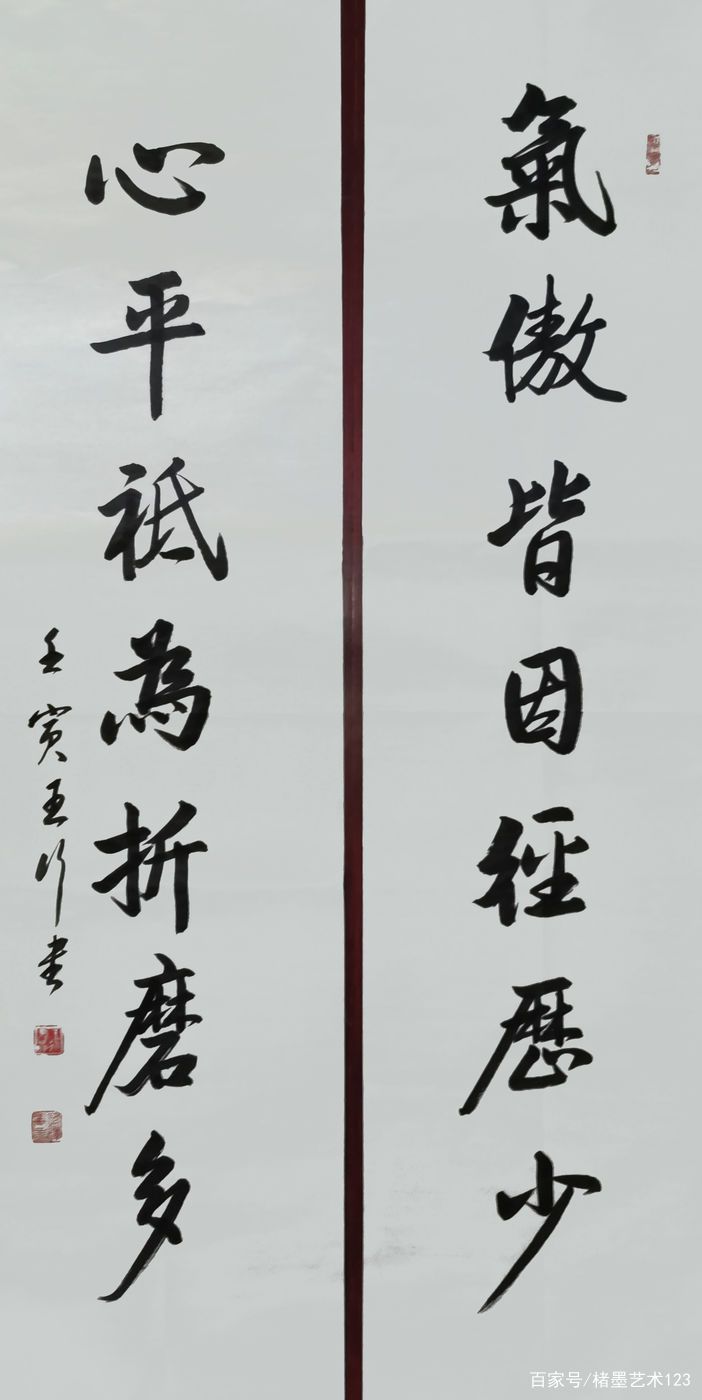 氣傲皆因經歷少
心平祗為折磨多
壬寅書
百家号/楮墨艺术123